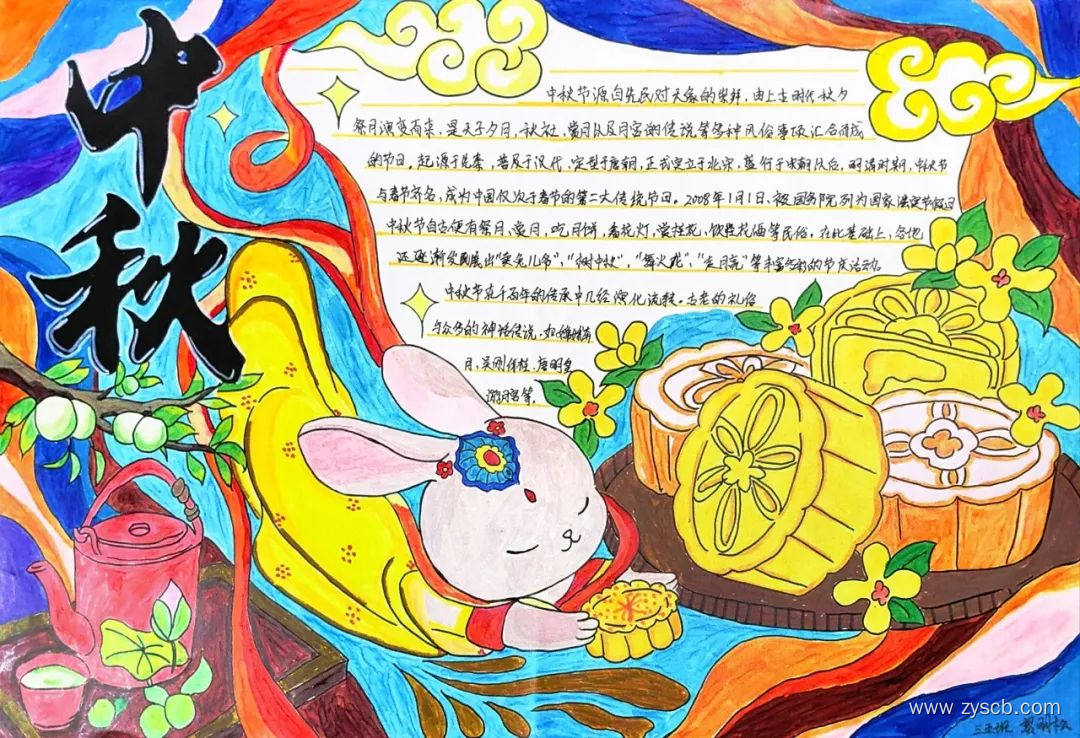 中秋
中秋节源自先民对天象的崇拜，由上古时代秋夕
祭月演变而来，是天子夕月，秋社，赏月以及月宫的传说等多种风俗事项汇合而成
的节日。起源于先秦，普及于汉代，定型于唐朝，正式定立于北宋，盛行于宋朝以后，明清时期，中秋节
与春节齐名，成为中国仅次于春节的第二大传统节日。2008年1月1日，被国务院列为国家法定节假日
中秋节自古便有祭月，赏月，吃月饼，看花灯，赏桂花，饮桂花酒等民俗，在此基础上，各地
还逐渐发展出"卖兔儿爷"，"树中秋"，"舞火龙"，"走月亮"等丰富多彩的节庆活动。
中秋节克千百年的传承中几经演化流转。古老的礼俗
与众多的神话传说，如嫦娥奔
月，吴刚伐桂，唐明皇
游月宫等。
www.zyscb.com
三五班